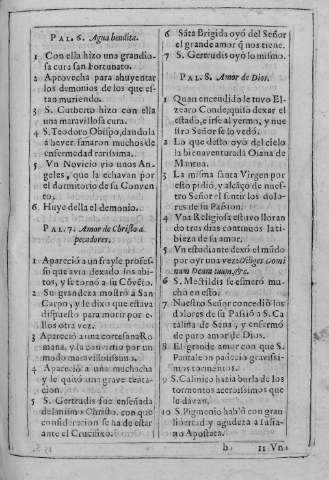 PAL. 6. Agua bendita.
1 Con ella hizo una grandio-
sa cura san Fortunato.
2 Aprovecha para ahuyentar
los demonios de los que es-
tan muriendo.
3 S. Cutberto hizo con ella
una maravillosa cura.
4 S. Teodoro Obispo, dandola
à bever. sanaron muchos de
enfermedad rarissima.
5 Vn Novicio vio unos An-
geles, que la echavan por
el dormitorio de su Conven
to.
6 Huye della el demonio.
PAL. 7. Amor de Christo a
pecadores.
1 Apareciò a un frayle profes-
so que avia dexado los abi-
tos, y se tornò a su Cõvẽto.
2 Su grandeza mostrò a San
Carpo, y le dixo que estava
dispuesto para morir por e-
llos otra vez.
3 Apareciò a una cortesana Ro
mana, y la convirtio por un
modo maravillosissimo.
4 Apareciò a una muchacha
y le quitò una grave tenta-
cion.
5 S. Gertrudis fue enseñada
del mismo Christo. con que
consideracion se ha de estar
ante el Crucifixo.
6 Sãta Brigida oyò del Señor
el grande amor q̃ nos tiene.
7 S. Gertrudis oyò lo mismo.
PAL. 8. Amor de Dios.
1 Quan encendido le tuvo El-
zearo Conde, quiso dexar el
estado, e irse al yermo, y nue
stro Señor se lo vedò.
2 Lo que desto oyò del cielo
la bienaventurada Diana de
Mantua.
3 La misma santa Virgen por
esto pidiò, y alcãçò de nues-
tro Señor el sentir los dolo-
res de su Passion.
4 Vna Religiosa estuvo lloran
do tres dias continuos la ti-
bieza de su amor.
5 Vn estudiante dexò el mũdo
por oyr una vez Diliges Domi
num Deum tuum, &c.
6 S. Mectildis se esmerò mu-
cho en esto.
7 Nuestro Señor concediò los
dolores de su Passiõ a S. Ca
talina de Sena, y enfermò
de puro amor de Dios.
8 El grande amor con que S.
Pantaleon padecio gravissi-
mos tormentos.
9 S. Calinico hazia burla de los
tormentos acerrissimos que
le davan.
10 S. Pigmenio hablò con gran
libertad y agudeza a Julia-
no Apostata.
b. 11 Vn